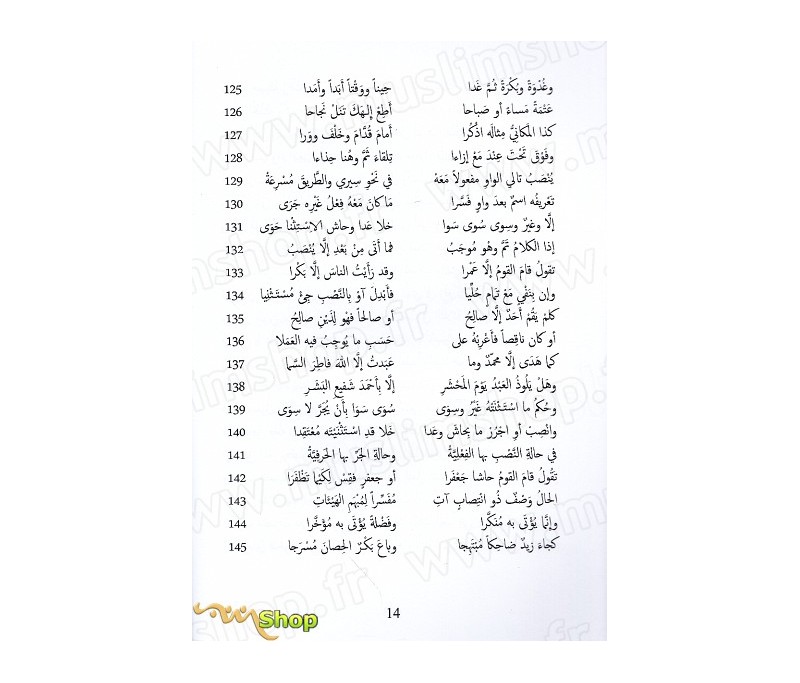 وغُدْوَةً وبُكْرَةً ثُمَّ غَدا حِيناً ووَقْتاً أبَداً وأَمَدا 125
عَتْمَةً مَساءً أو صَباحا أَطِعْ إلهَكَ تَنَلْ نَجاحا 126
كذا المَكانِيُّ مِثالَه اذْكُرا أمامَ قُدَّامَ وخَلْفَ ووَرا 127
وفَوْقَ تَحْتَ عِنْدَ مَعْ إزاءا تِلقاءَ ثَمَّ وهُنا حِذاءا 128
يُنْصَبُ تالي الواوِ مفعولاً مَعَهْ في نَحْوِ سِيري والطَّرِيقَ مُسْرِعَةْ 129
تَعْرِيفُه اسمٌ بعدَ واوٍ فَسَّرا مَا كانَ مَعْهُ فِعْلُ غَيْرِه جَرَى 130
إلَّا وغَيْرٌ وسِوى سُوى سَوا خلا عَدا وحاشَ الاِسْتِثْنا حَوَى 131
إذا الكلامُ تَمَّ وهُو مُوجَبُ فما أتَى مِنْ بَعْدِ إلَّا يُنْصَبُ 132
تقولُ قامَ القومُ إلَّا عَمْرا وقد رَأَيْتُ الناسَ إلَّا بَكْرا 133
وإن بِنَفْيٍ مَعْ تَمامٍ حُلِّيا فأَبْدِلَ اَوْ بِالنَّصْبِ جِئْ مُسْتَثْنِيا 134
كلمْ يَقُمْ أَحَدٌ إلَّا صالِحُ أو صالحاً فهْو لِذَيْنِ صالِحُ 135
أو كان ناقِصاً فأَعْرِبْهُ على حَسَبِ ما يُوجِبُ فيه العَمَلا 136
كما هَدَى إلَّا محمّدٌ وما عَبَدتُ إلَّا اللهَ فاطِرَ السَّما 137
وهَلْ يَلُوذُ العَبْدُ يَوْمَ المَحْشَرِ إلَّا بِأَحْمَدَ شَفِيعِ البَشَرِ 138
وحُكْمُ ما اسْتَثْنَتْهُ غَيْرُ وسِوى سُوَى سَوَا بِأَنْ يُجَرَّ لا سِوَى 139
وانْصِبْ أوِ اجْرُرْ ما بِحاشَ وعَدا خَلا قدِ اسْتَثْنَيْتَه مُعْتَقِدا 140
في حالةِ النَّصْبِ بها الفِعْلِيَّةْ وحالةِ الجَرِّ بها الحَرفِيَّةْ 141
تقُولُ قامَ القومُ حاشا جَعْفَرا أو جعفرٍ فقِسْ لِكَيْما تَظْفَرَا 142
الحالُ وَصْفٌ ذُو انْتِصابٍ آتِ مُفَسِّراً لِمُبْهَمِ الهَيْئاتِ 143
وإنَّما يُؤْتَى به مُنَكَّرا وفَضْلةً يُؤْتَى به مُؤَخَّرا 144
كجاءَ زيدٌ ضاحِكاً مُبْتَهِجا وباعَ بَكْرٌ الحِصانَ مُسْرَجا 145
14
Shop
www.muslimshop.fr